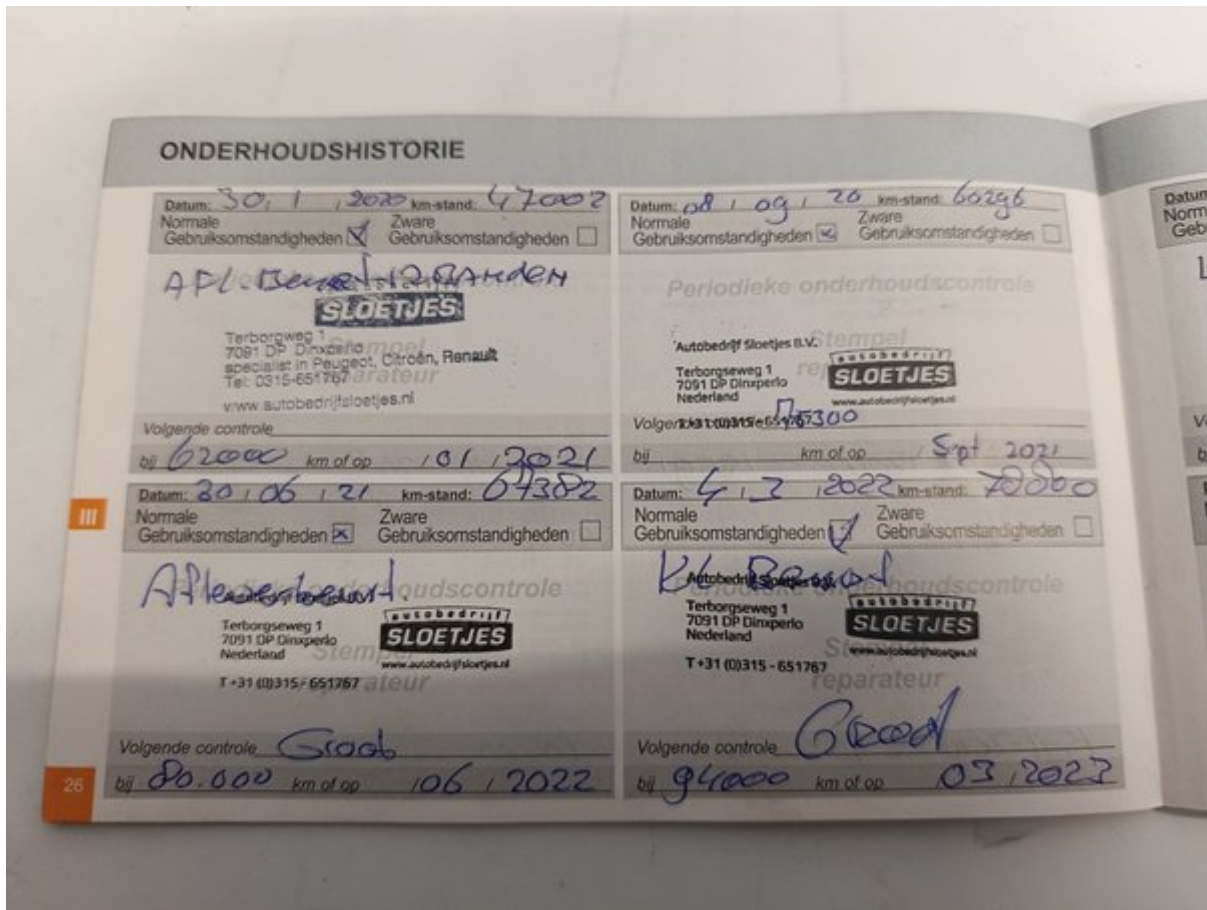 ONDERHOUDSHISTORIE
Datum: 30 / 1 / 2020 km-stand: 47002
Normale Zware
Gebruiksomstandigheden Gebruiksomstandigheden
AFL. Beurt + 2 BANDEN
SLOETJES
Terborgweg 1
7091 DP Dinxperlo
specialist in Peugeot, Citroën, Renault
Tel: 0315-651767
www.autobedrijfsloetjes.nl
Volgende controle
bij 62000 km of op / 01 / 2021
Datum: 08 / 09 / 20 km-stand: 60296
Normale Zware
Gebruiksomstandigheden Gebruiksomstandigheden
Periodieke onderhoudscontrole
Stempel
reparateur
Autobedrijf Sloetjes B.V.
Terborgseweg 1
7091 DP Dinxperlo
Nederland
autobedrijf
SLOETJES
www.autobedrijfsloetjes.nl
T +31 (0)315 - 651767
Volgende controle 75300
bij km of op Sept 2021
III
Datum: 30 / 06 / 21 km-stand: 67382
Normale Zware
Gebruiksomstandigheden Gebruiksomstandigheden
Periodieke onderhoudscontrole
Afleverbeurt
Terborgseweg 1
7091 DP Dinxperlo
Nederland
autobedrijf
SLOETJES
www.autobedrijfsloetjes.nl
Stempel
reparateur
T +31 (0)315 - 651767
Volgende controle Groot
bij 80.000 km of op / 06 / 2022
Datum: 4 / 3 / 2022 km-stand: 78000
Normale Zware
Gebruiksomstandigheden Gebruiksomstandigheden
Periodieke onderhoudscontrole
Kl Beurt
Autobedrijf Sloetjes B.V.
Terborgseweg 1
7091 DP Dinxperlo
Nederland
autobedrijf
SLOETJES
www.autobedrijfsloetjes.nl
Stempel
reparateur
T +31 (0)315 - 651767
Volgende controle Groot
bij 94000 km of op 03 / 2023
26
Datum
Norm
Geb